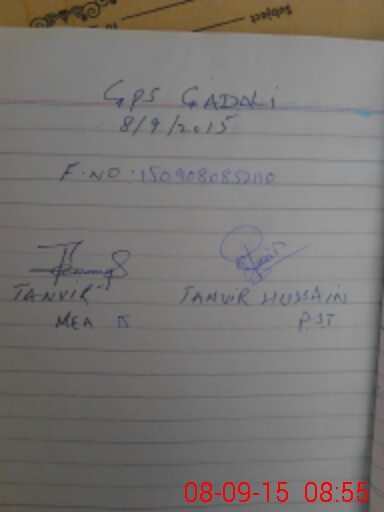 Subject
GPS GADALi
8/9/2015
F.NO: 150908085200
TANVIR TANVIR HUSSAIN
MEA PST
08-09-15 08:55